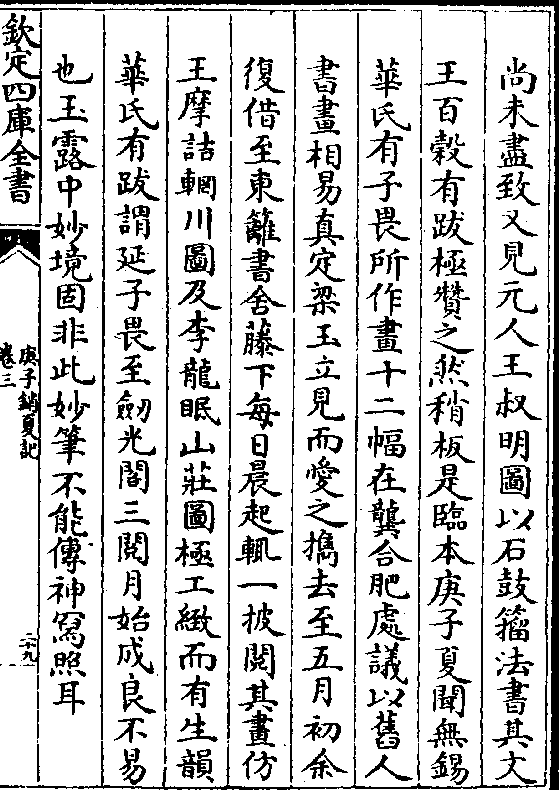 尚未盡致又見元人王叔明圖以石鼓籀法書其文
王百穀有跋極贊之然稍板是臨本庚子夏聞無錫
華氏有子畏所作畫十二幅在龔合肥處議以舊人
書畫相易真定梁玉立見而愛之携去至五月初余
復借至東籬書舍藤下每日晨起輒一披閱其畫仿
王摩詰輞川圖及李龍眠山莊圖極工緻而有生韻
華氏有跋謂延子畏至劒光閣三閱月始成良不易
也玉露中妙境固非此妙筆不能傳神寫照耳
欽定四庫全書
庚子銷夏記
卷三
二十九